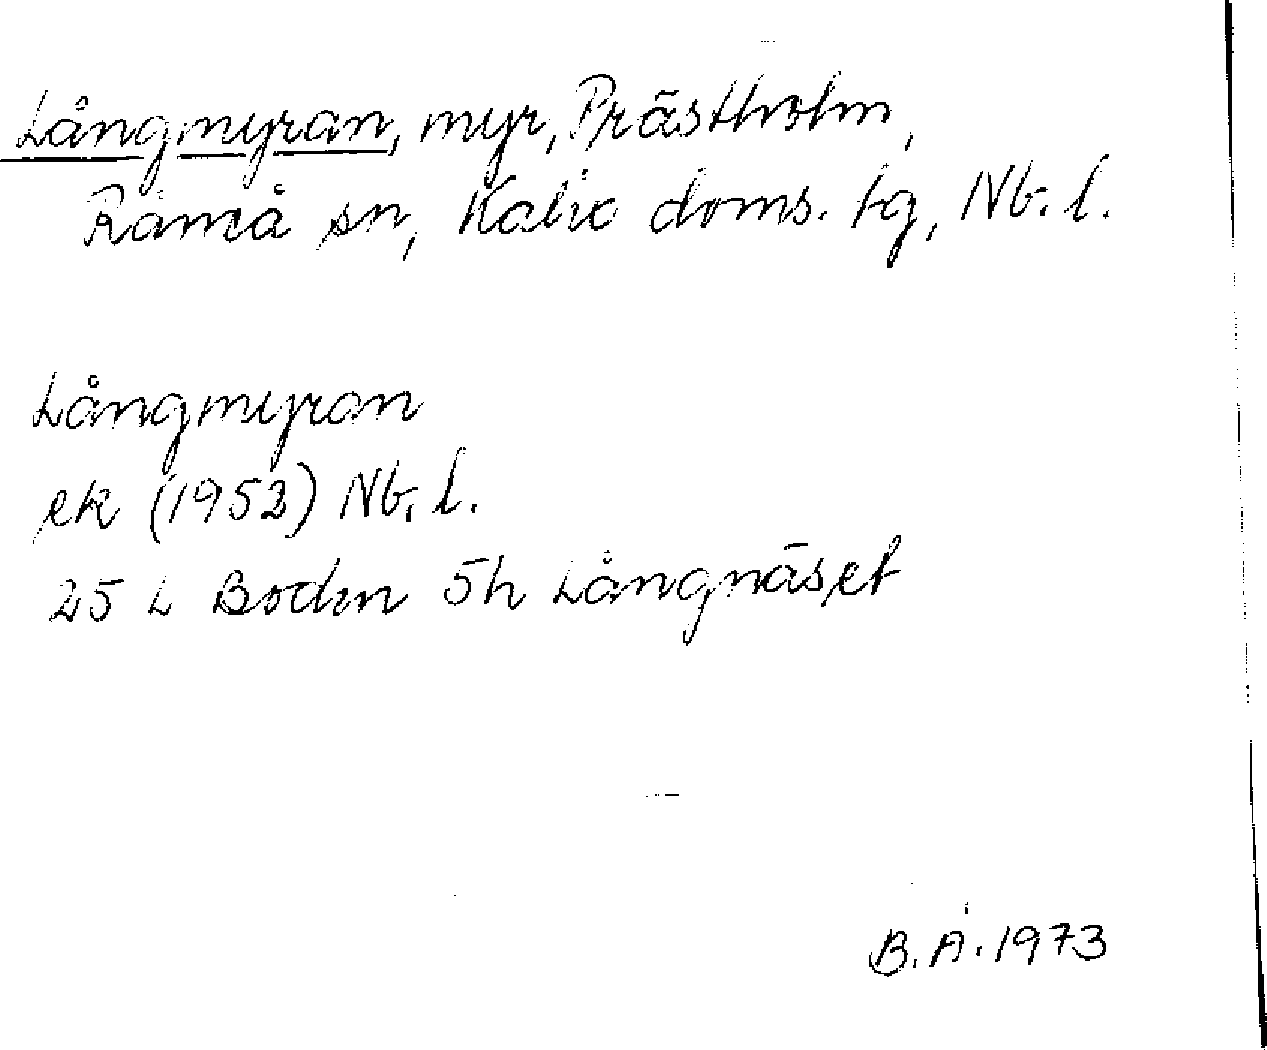 Långmyran, myr, Prästholm,
Råneå sn, Kalix doms. tg, Nb. l.
Långmyran
ek (1952) Nb. l.
25 L Boden 5h Långnäset
B. Å. 1973